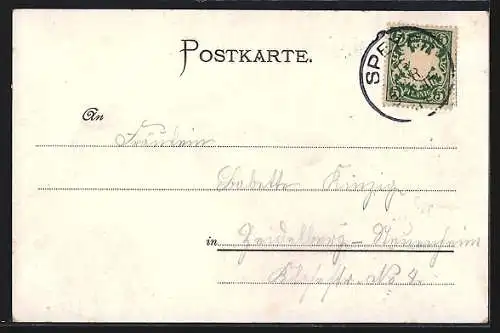 POSTKARTE.
SPE
5 5
An
Fräulein
Babette Kinzig
in Heidelberg-Neuenheim
No 4.